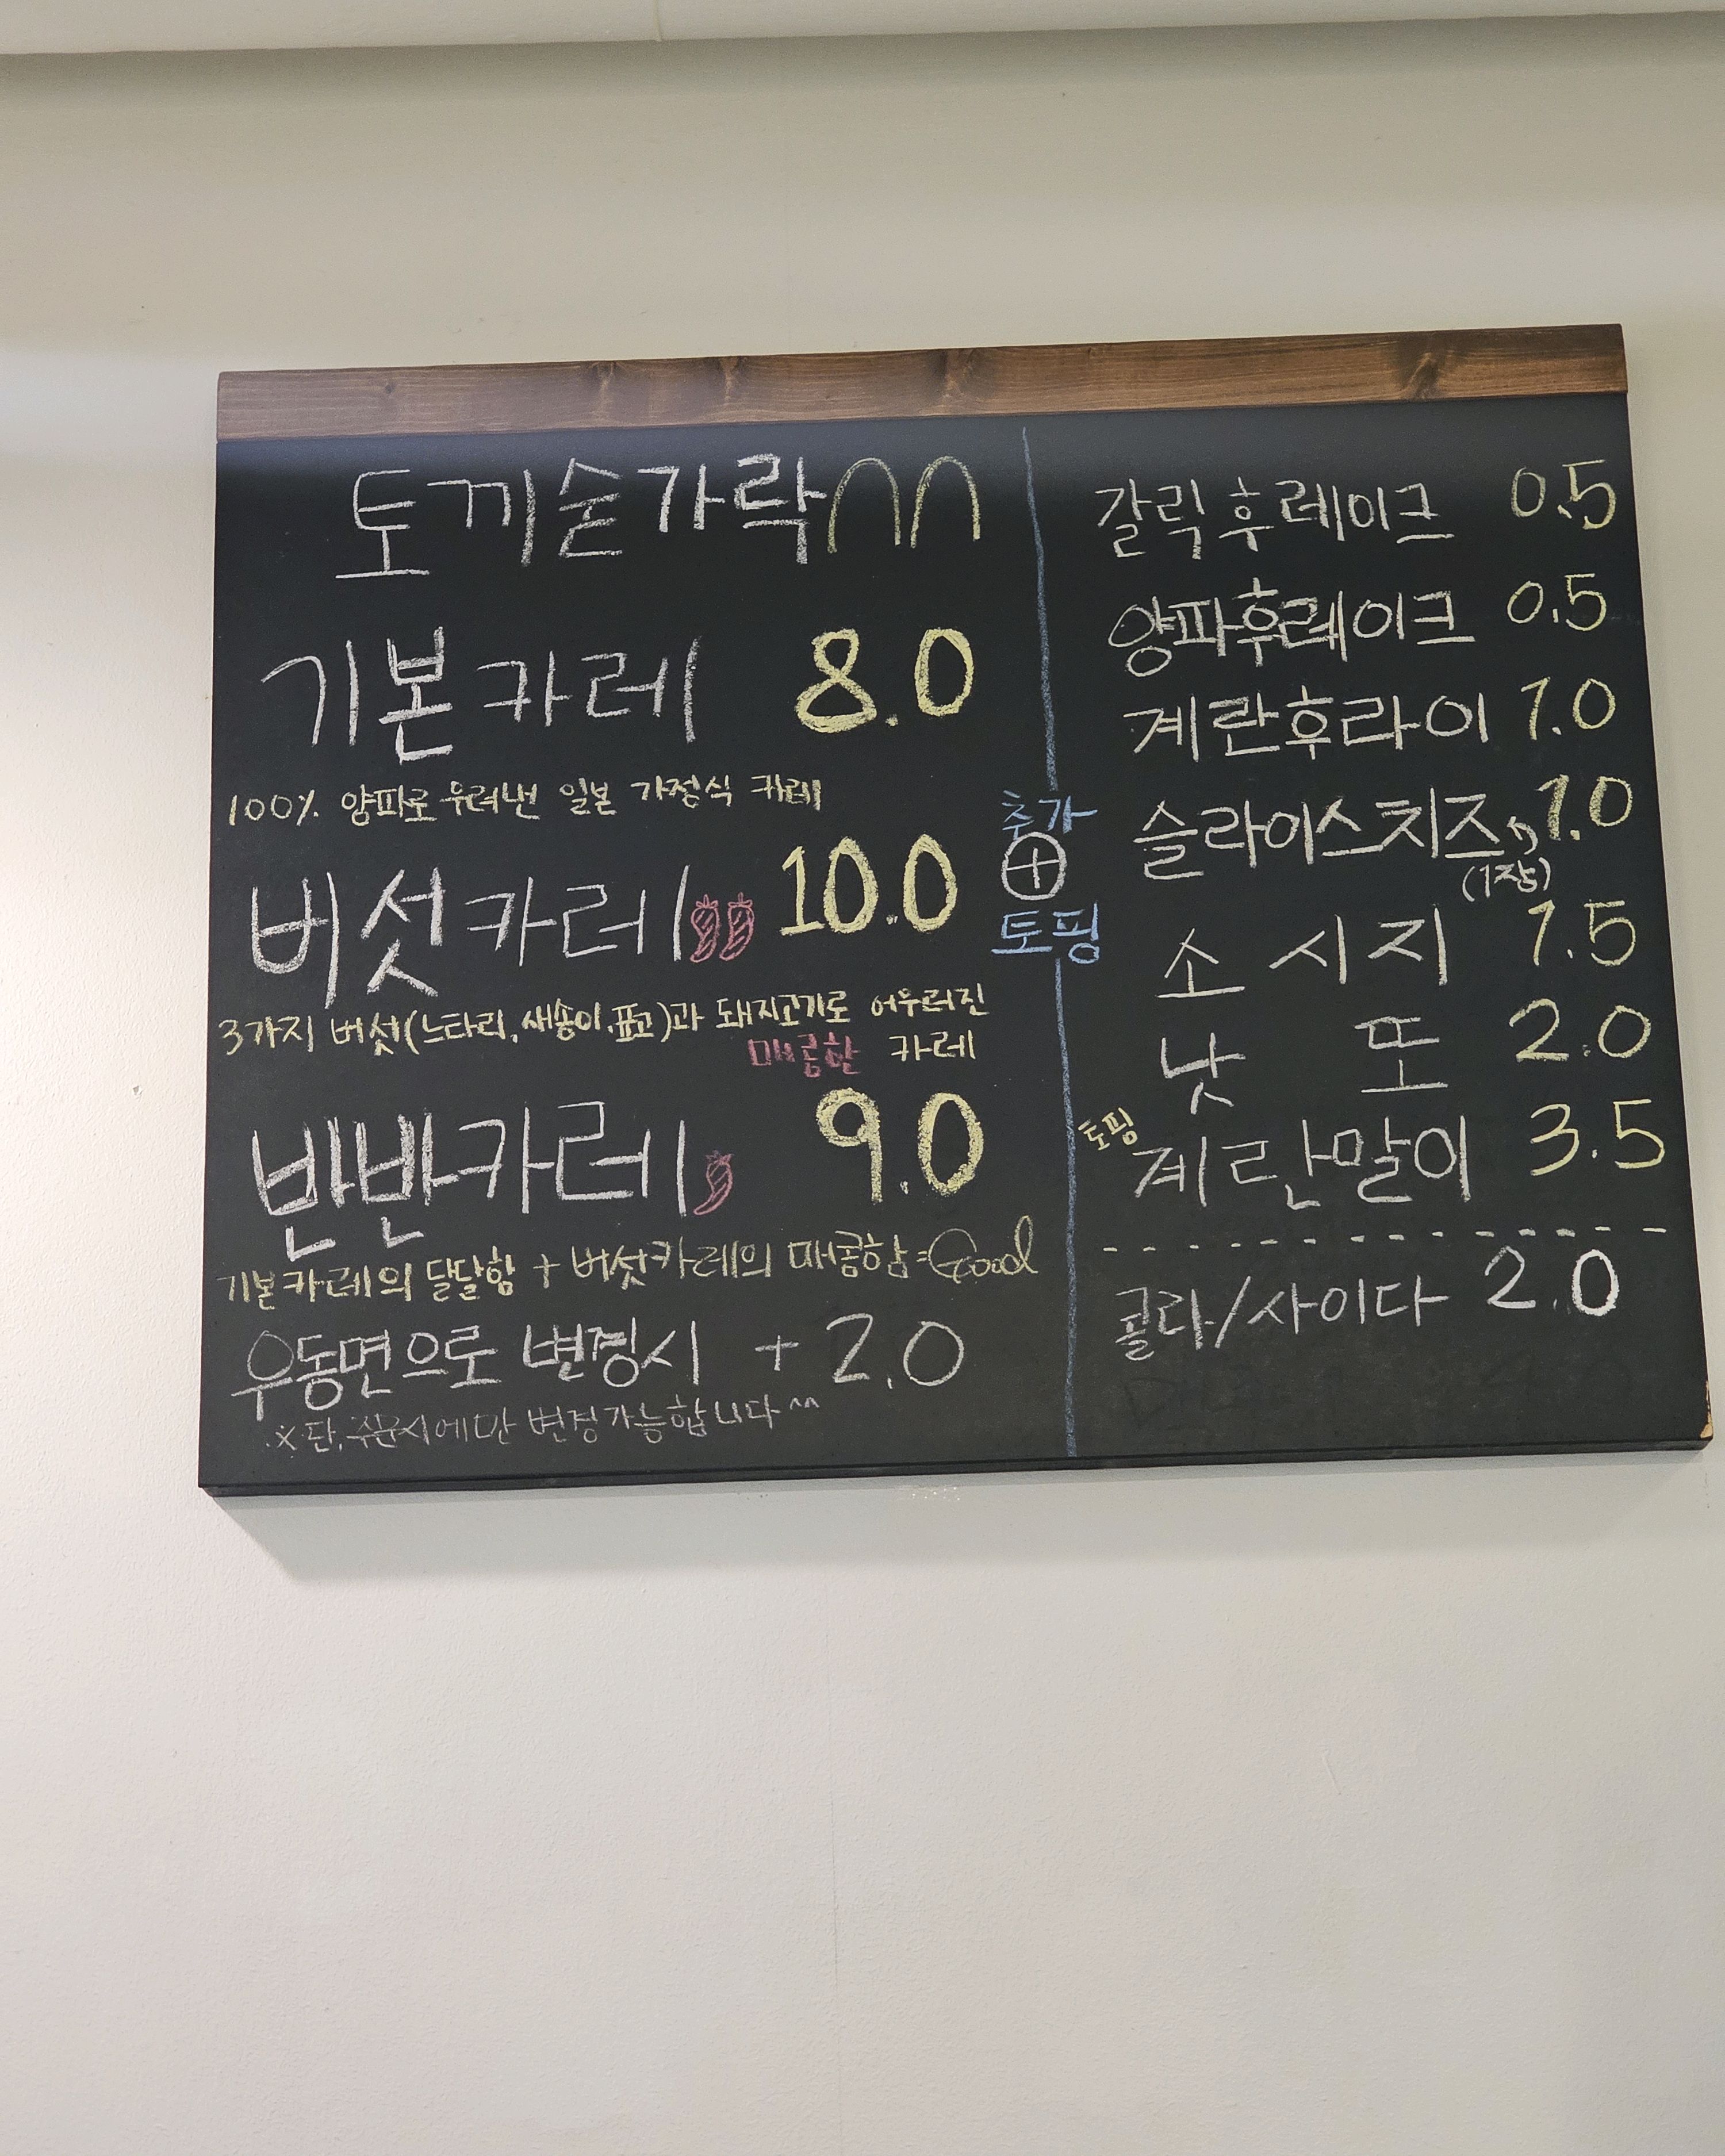 토끼숟가락
기본카레 8.0
100% 양파로 우려낸 일본 가정식 카레
버섯카레 10.0
3가지 버섯(느타리,새송이,표고)과 돼지고기로 어우러진
매콤한 카레
반반카레 9.0
기본카레의 달달함 + 버섯카레의 매콤함=Good
우동면으로 변경시 +2.0
※단, 주문시에만 변경가능합니다^^
추가
+
토핑
갈릭후레이크 0.5
양파후레이크 0.5
계란후라이 1.0
슬라이스치즈 1.0
(1장)
소시지 1.5
낫또 2.0
토핑
계란말이 3.5
콜라/사이다 2.0